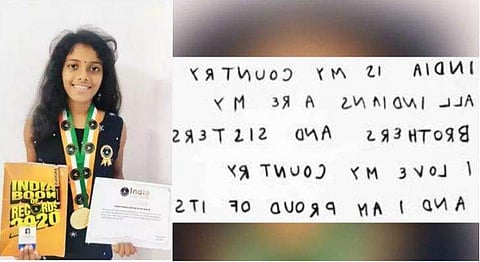 INDIA BOOK OF RECORDS 2020
India
INDIA IS MY COUNTRY
ALL INDIANS ARE MY
BROTHERS AND SISTERS
I LOVE MY COUNTRY
AND I AM PROUD OF ITS